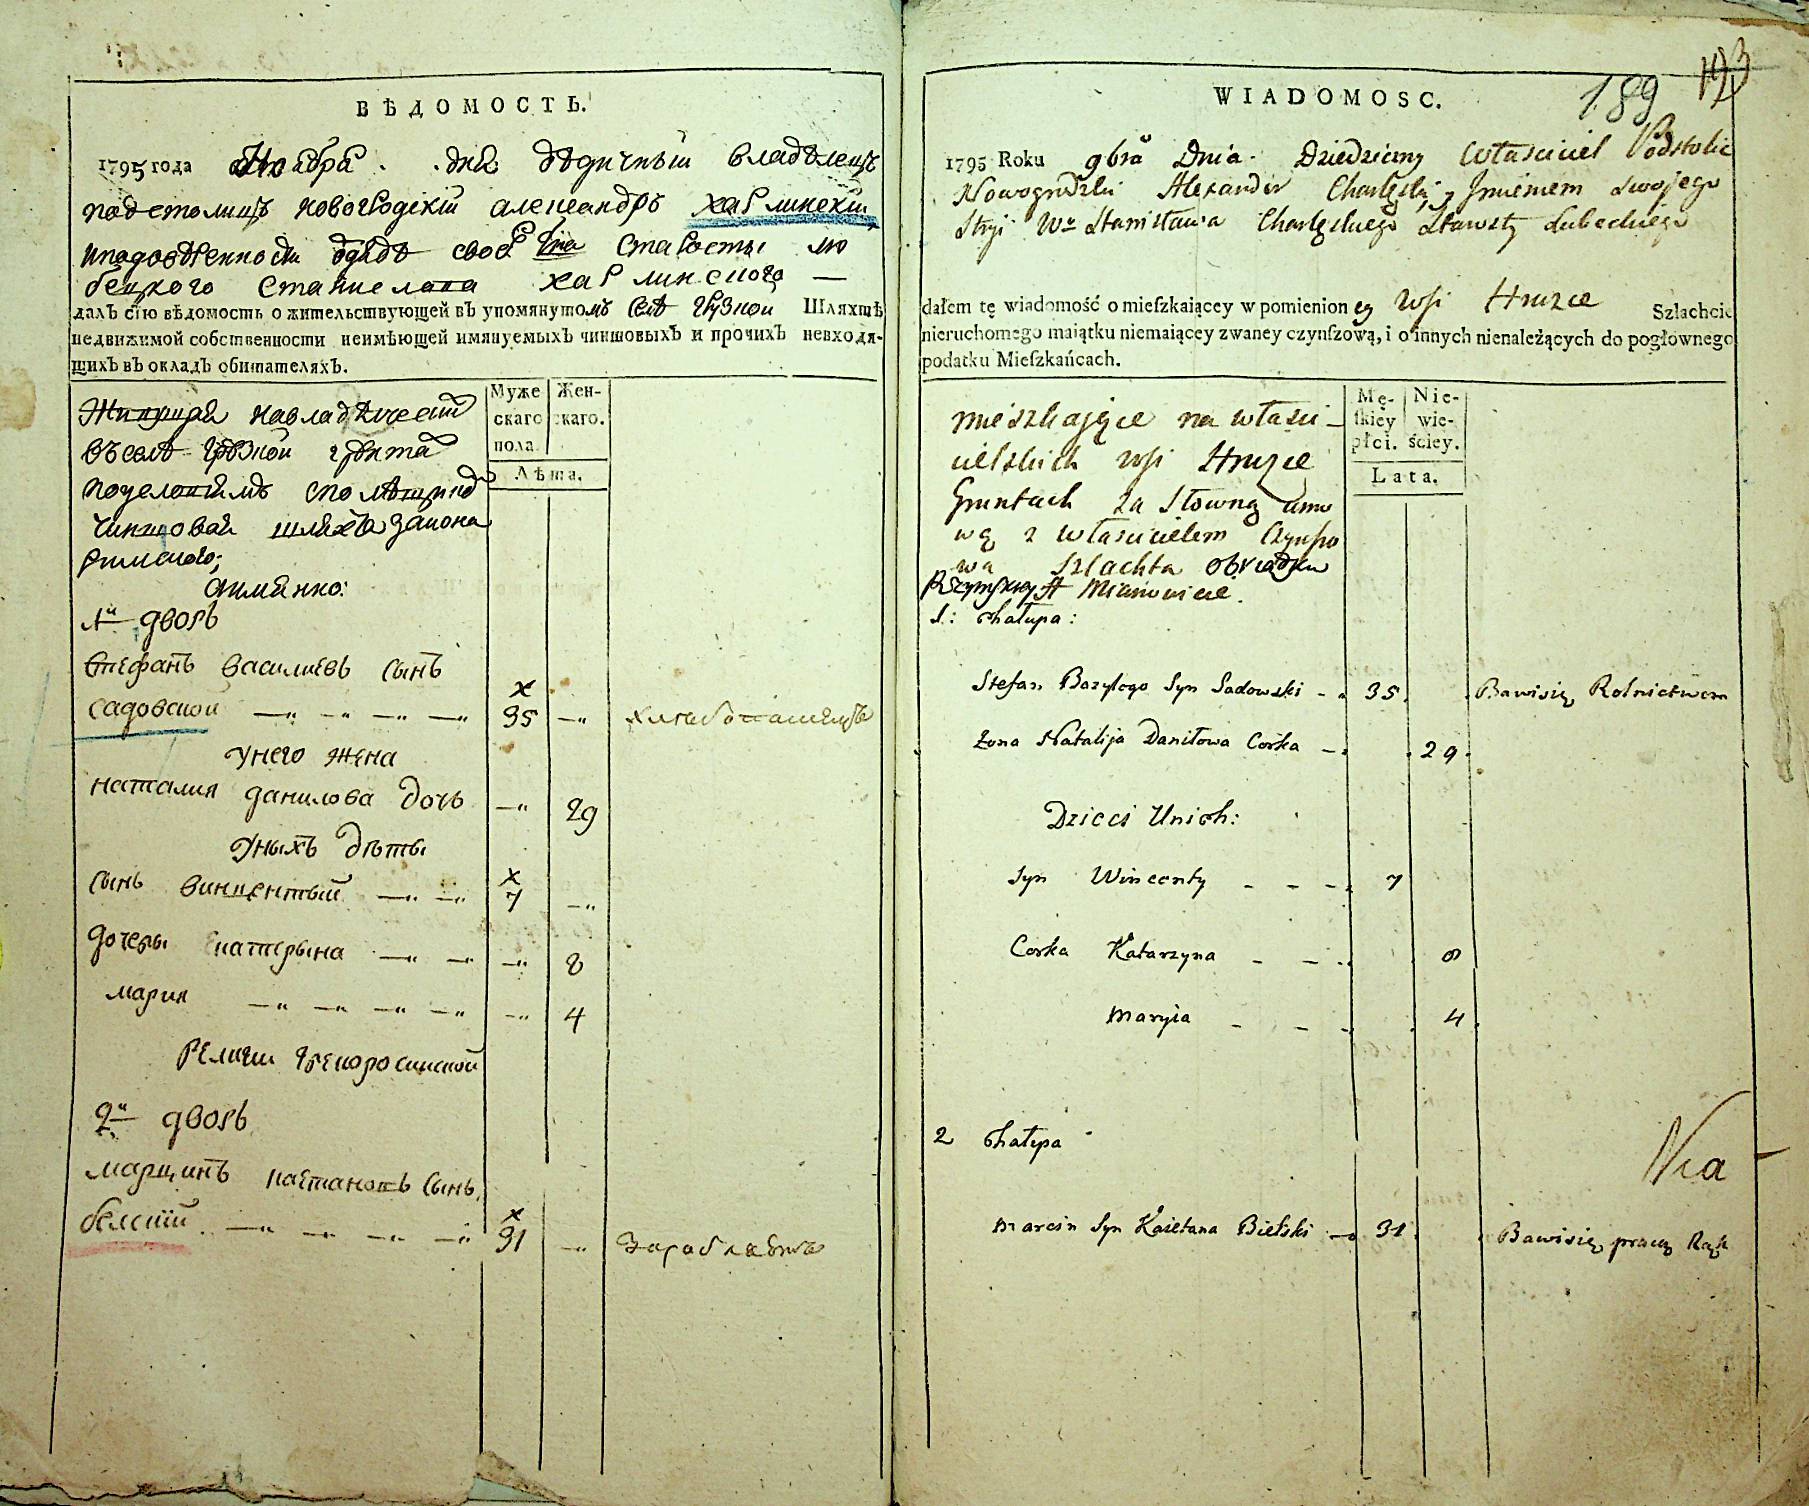 ВѢДОМОСТЬ.
1795 года Ноабра . . дна дѣдичный владѣлецъ
подстолицъ новогродскій александръ харлинскій
стрыа старосты лю
бецкого станислава харлинского —
далъ сію вѣдомость о жительствующей въ упомянутомъ селѣ грузкои Шляхтѣ
недвижимой собственности неимѣющей имянуемыхъ чиншовыхъ и прочихъ невходя-
щихъ въ окладъ обитателяхъ.
Муже
скаго
пола.
Жен-
скаго.
Лѣта.
навладѣлческій
въ селѣ грузкои
чиншовая шляхта закона
римского;
аимянно:
1й дворъ
стефанъ василиевъ сынъ
садовской —„ —„ —„ —„ х 35 —„ хлебопашецъ
у него жена
наталия данилова дочь —„ 29
уныхъ дѣты
сынъ винцентый —„ —„ х 7 —„
дочеры катерына —„ —„ —„ 8
мария —„ —„ —„ —„ —„ 4
релиеи грекоросииской
2й дворъ
марцинъ каетановъ сынъ
белскій —„ —„ —„ —„ х 31 —„
WIADOMOSC.
189 193
1795 Roku 9bra Dnia . Dziedziczny Właściciel Podstolic
Nowogrodzki Alexander Charlęski, Jmieniem swojego
Stryi Wo Stanisława Charlęskiego Starosty Lubeckiego
dałem tę wiadomość o mieſzkaiącey w pomienion ey wsi Hruzce Szlachcie
nieruchomego maiątku niemaiącey zwaney czynſzową, i o innych nienależących do pogłownego
podatku Mieſzkańcach.
Mę-
ſkiey
płci.
Nie-
wie-
ściey.
Lata.
mieszkające na właści-
cielskich wsi Hruzce
Gruntach za słowną umo
wą z właścicielem Czynszo
wa Szlachta obrządku
Rzymskiego A Mianowicie.
1: Chałupa:
Stefan Bazylego Syn Sadowski - - 35. Bawi się Rolnictwem
Żona Natalija Daniłowa Corka - . 29.
Dzieci Unich:
Syn Wincenty - - - 7
Corka Katarzyna - - . 8
Maryia - - - 4
2 Chałupa
Marcin Syn Kaietana Bielski - 31. Bawi się pracą Rąk